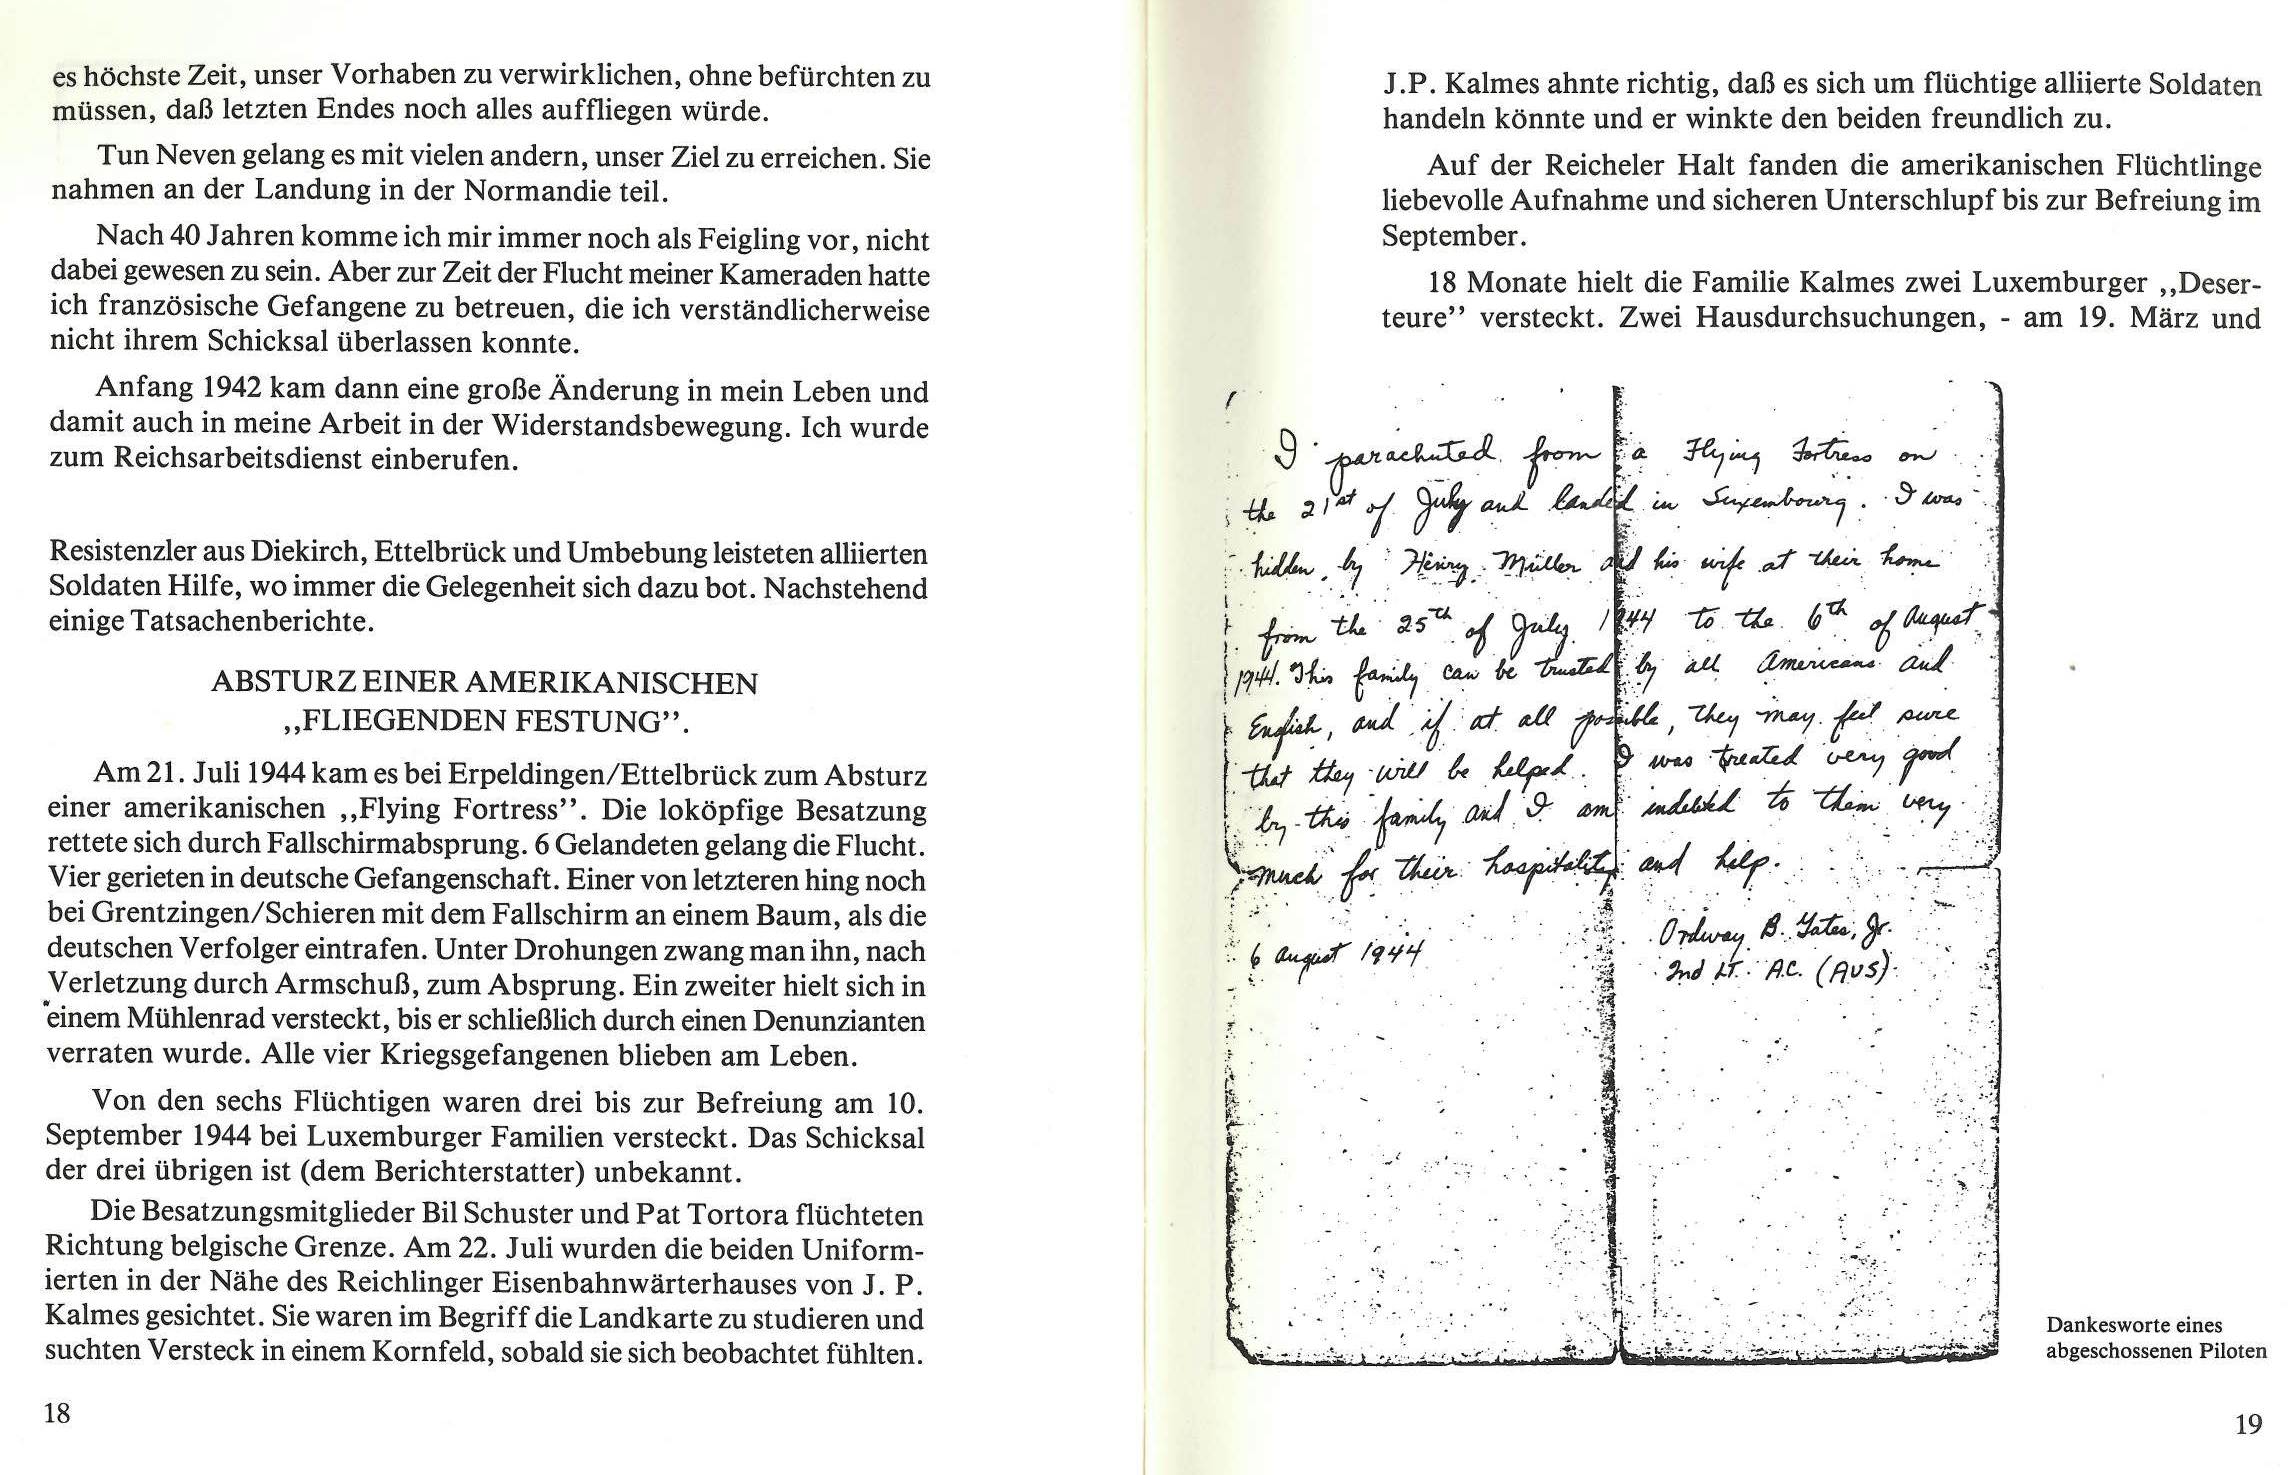 es höchste Zeit, unser Vorhaben zu verwirklichen, ohne befürchten zu
müssen, daß letzten Endes noch alles auffliegen würde.
Tun Neven gelang es mit vielen andern, unser Ziel zu erreichen. Sie
nahmen an der Landung in der Normandie teil.
Nach 40 Jahren komme ich mir immer noch als Feigling vor, nicht
dabei gewesen zu sein. Aber zur Zeit der Flucht meiner Kameraden hatte
ich französische Gefangene zu betreuen, die ich verständlicherweise
nicht ihrem Schicksal überlassen konnte.
Anfang 1942 kam dann eine große Änderung in mein Leben und
damit auch in meine Arbeit in der Widerstandsbewegung. Ich wurde
zum Reichsarbeitsdienst einberufen.
Resistenzler aus Diekirch, Ettelbrück und Umbebung leisteten alliierten
Soldaten Hilfe, wo immer die Gelegenheit sich dazu bot. Nachstehend
einige Tatsachenberichte.
ABSTURZ EINER AMERIKANISCHEN
,,FLIEGENDEN FESTUNG’’.
Am 21. Juli 1944 kam es bei Erpeldingen/Ettelbrück zum Absturz
einer amerikanischen ,,Flying Fortress’’. Die loköpfige Besatzung
rettete sich durch Fallschirmabsprung. 6 Gelandeten gelang die Flucht.
Vier gerieten in deutsche Gefangenschaft. Einer von letzteren hing noch
bei Grentzingen/Schieren mit dem Fallschirm an einem Baum, als die
deutschen Verfolger eintrafen. Unter Drohungen zwang man ihn, nach
Verletzung durch Armschuß, zum Absprung. Ein zweiter hielt sich in
einem Mühlenrad versteckt, bis er schließlich durch einen Denunzianten
verraten wurde. Alle vier Kriegsgefangenen blieben am Leben.
Von den sechs Flüchtigen waren drei bis zur Befreiung am 10.
September 1944 bei Luxemburger Familien versteckt. Das Schicksal
der drei übrigen ist (dem Berichterstatter) unbekannt.
Die Besatzungsmitglieder Bil Schuster und Pat Tortora flüchteten
Richtung belgische Grenze. Am 22. Juli wurden die beiden Uniform-
ierten in der Nähe des Reichlinger Eisenbahnwärterhauses von J. P.
Kalmes gesichtet. Sie waren im Begriff die Landkarte zu studieren und
suchten Versteck in einem Kornfeld, sobald sie sich beobachtet fühlten.
18
J.P. Kalmes ahnte richtig, daß es sich um flüchtige alliierte Soldaten
handeln könnte und er winkte den beiden freundlich zu.
Auf der Reicheler Halt fanden die amerikanischen Flüchtlinge
liebevolle Aufnahme und sicheren Unterschlupf bis zur Befreiung im
September.
18 Monate hielt die Familie Kalmes zwei Luxemburger ,,Deser-
teure’’ versteckt. Zwei Hausdurchsuchungen, - am 19. März und
I parachuted from a Flying Fortress on
the 21st of July and landed in Luxembourg. I was
hidden by Henry Müller and his wife at their home
from the 25th of July 1944 to the 6th of August
1944. This family can be trusted by all Americans and
English, and if at all possible, they may feel sure
that they will be helped. I was treated very good
by this family and I am indebted to them very
much for their hospitality and help.
Ordway B. Gates, Jr.
6 August 1944
2nd LT. A.C. (AUS)
Dankesworte eines
abgeschossenen Piloten
19